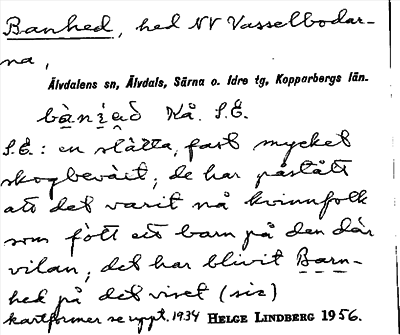 Banhed, hed NV Vasselbodar-
na,
Älvdalens sn, Älvdals, Särna o. Idre tg, Kopparbergs län.
Kå. S.E.
S.E.: en slätta, fast mycket
skogbeväxt; de har påstått
att det varit nå kvinnfolk
som fött ett barn på den där
vilan, det har blivit Barn-
hed på det viset (sic)
kartformer se uppt. 1934 HELGE LINDBERG 1956.